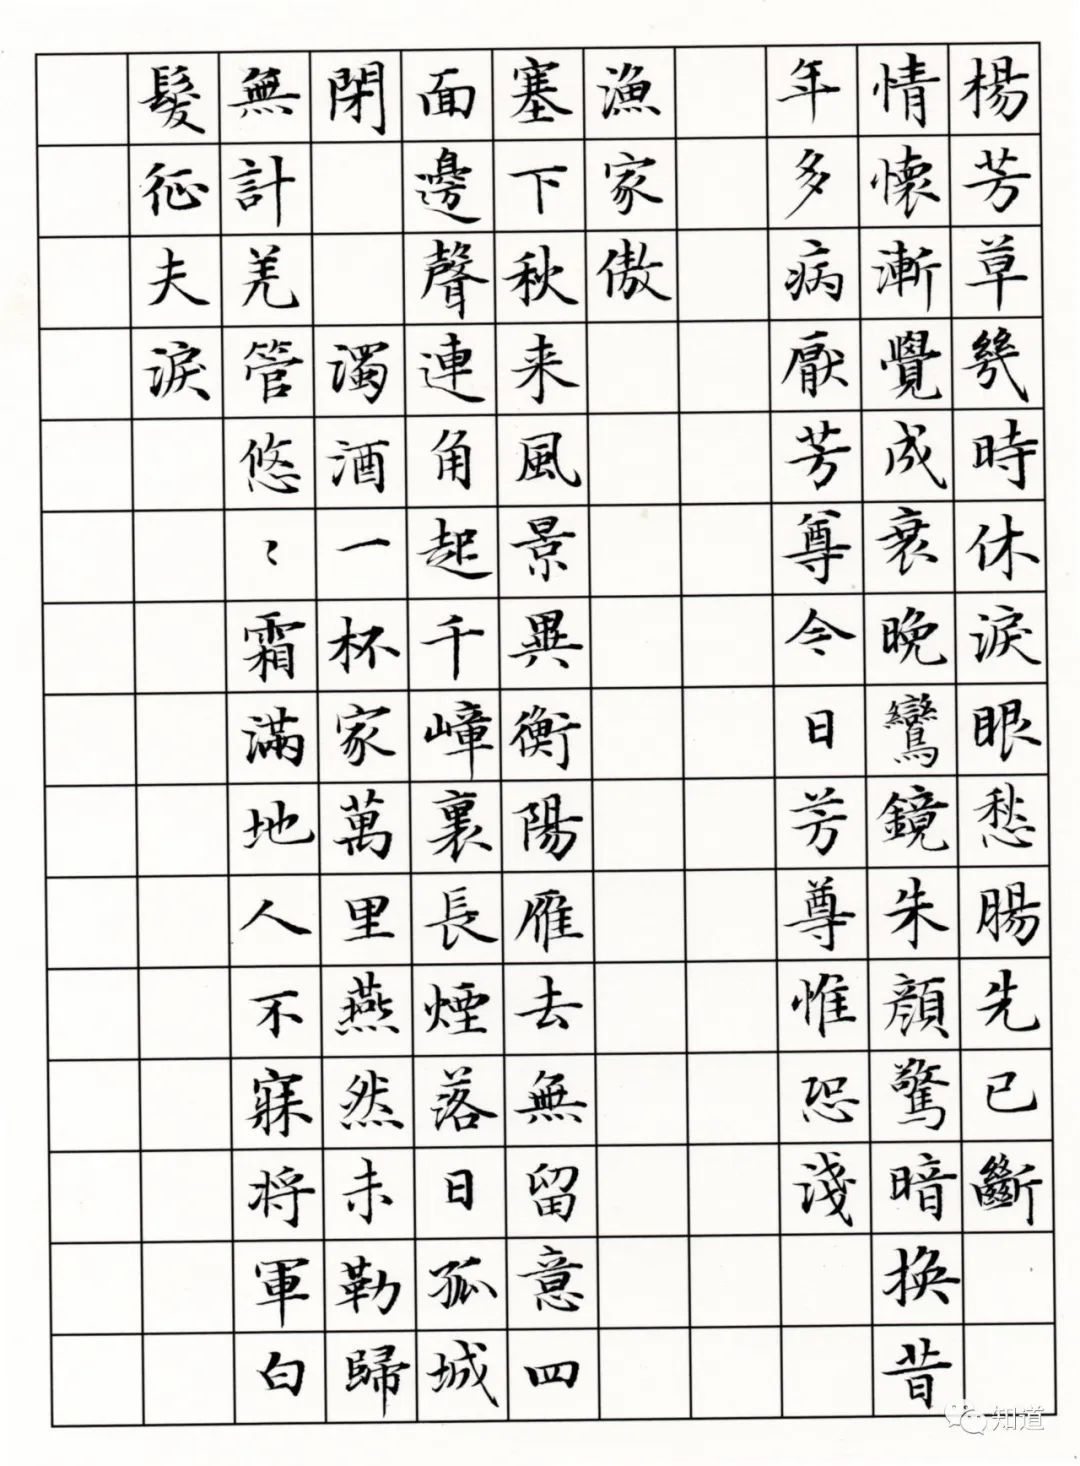 楊芳草幾時休淚眼愁腸先已斷
情懷漸覺成衰晚鸞鏡朱顏驚暗換昔
年多病厭芳尊今日芳尊惟恐淺
漁家傲
塞下秋来風景異衡陽雁去無留意四
面邊聲連角起千嶂裏長煙落日孤城
閉 濁酒一杯家萬里燕然未勒歸
無計羌管悠〻霜滿地人不寐将軍白
髮征夫淚
知道